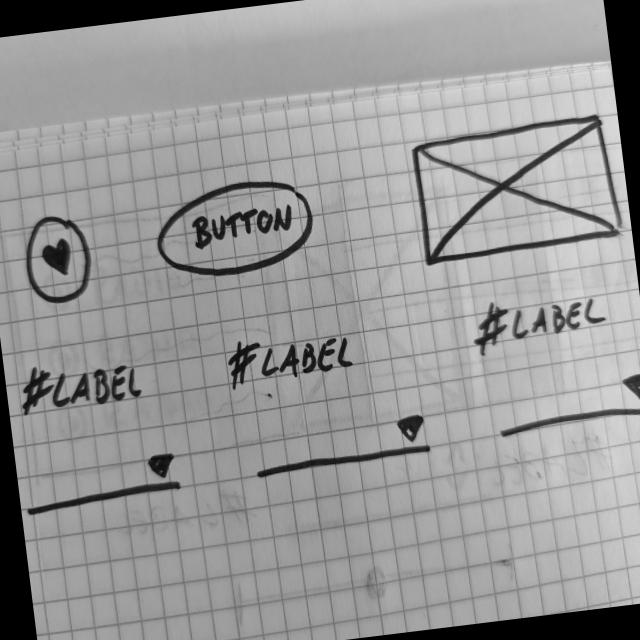 BUTTON
#LABEL
#LABEL
#LABEL